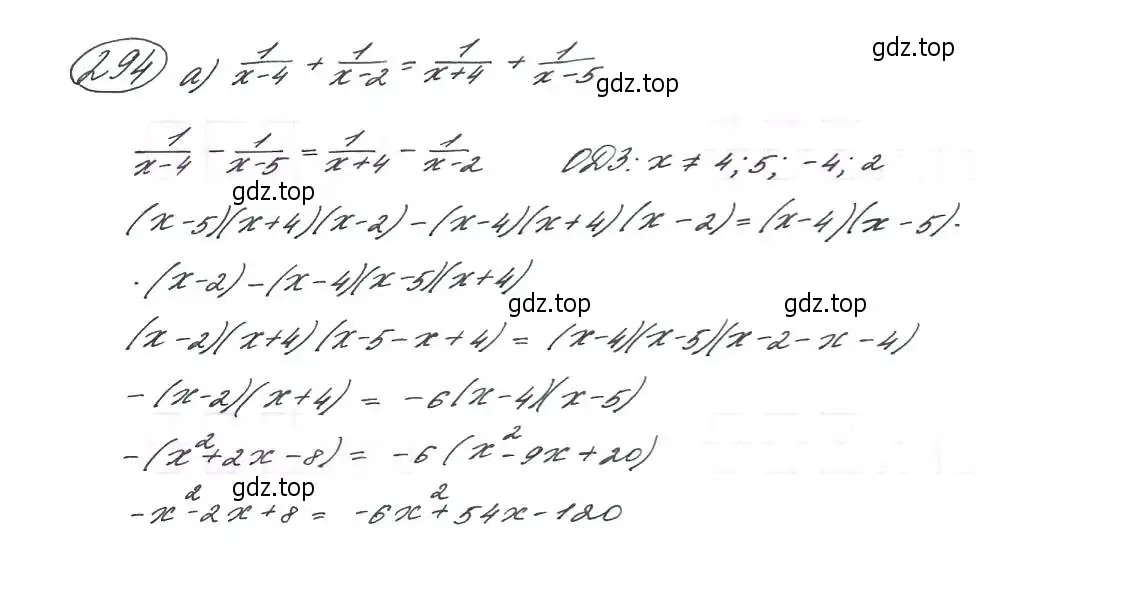 294 а) 1/(x-4) + 1/(x-2) = 1/(x+4) + 1/(x-5) gdz.top
gdz.top
1/(x-4) - 1/(x-5) = 1/(x+4) - 1/(x-2) ОДЗ: x ≠ 4; 5; -4; 2
gdz.top
(x-5)(x+4)(x-2)-(x-4)(x+4)(x-2)=(x-4)(x-5)·
·(x-2)-(x-4)(x-5)(x+4)
gdz.top gdz.top
(x-2)(x+4)(x-5-x+4) = (x-4)(x-5)(x-2-x-4)
-(x-2)(x+4) = -6(x-4)(x-5)
-(x²+2x-8) = -6(x²-9x+20)
gdz.top
-x²-2x+8 = -6x²+54x-120